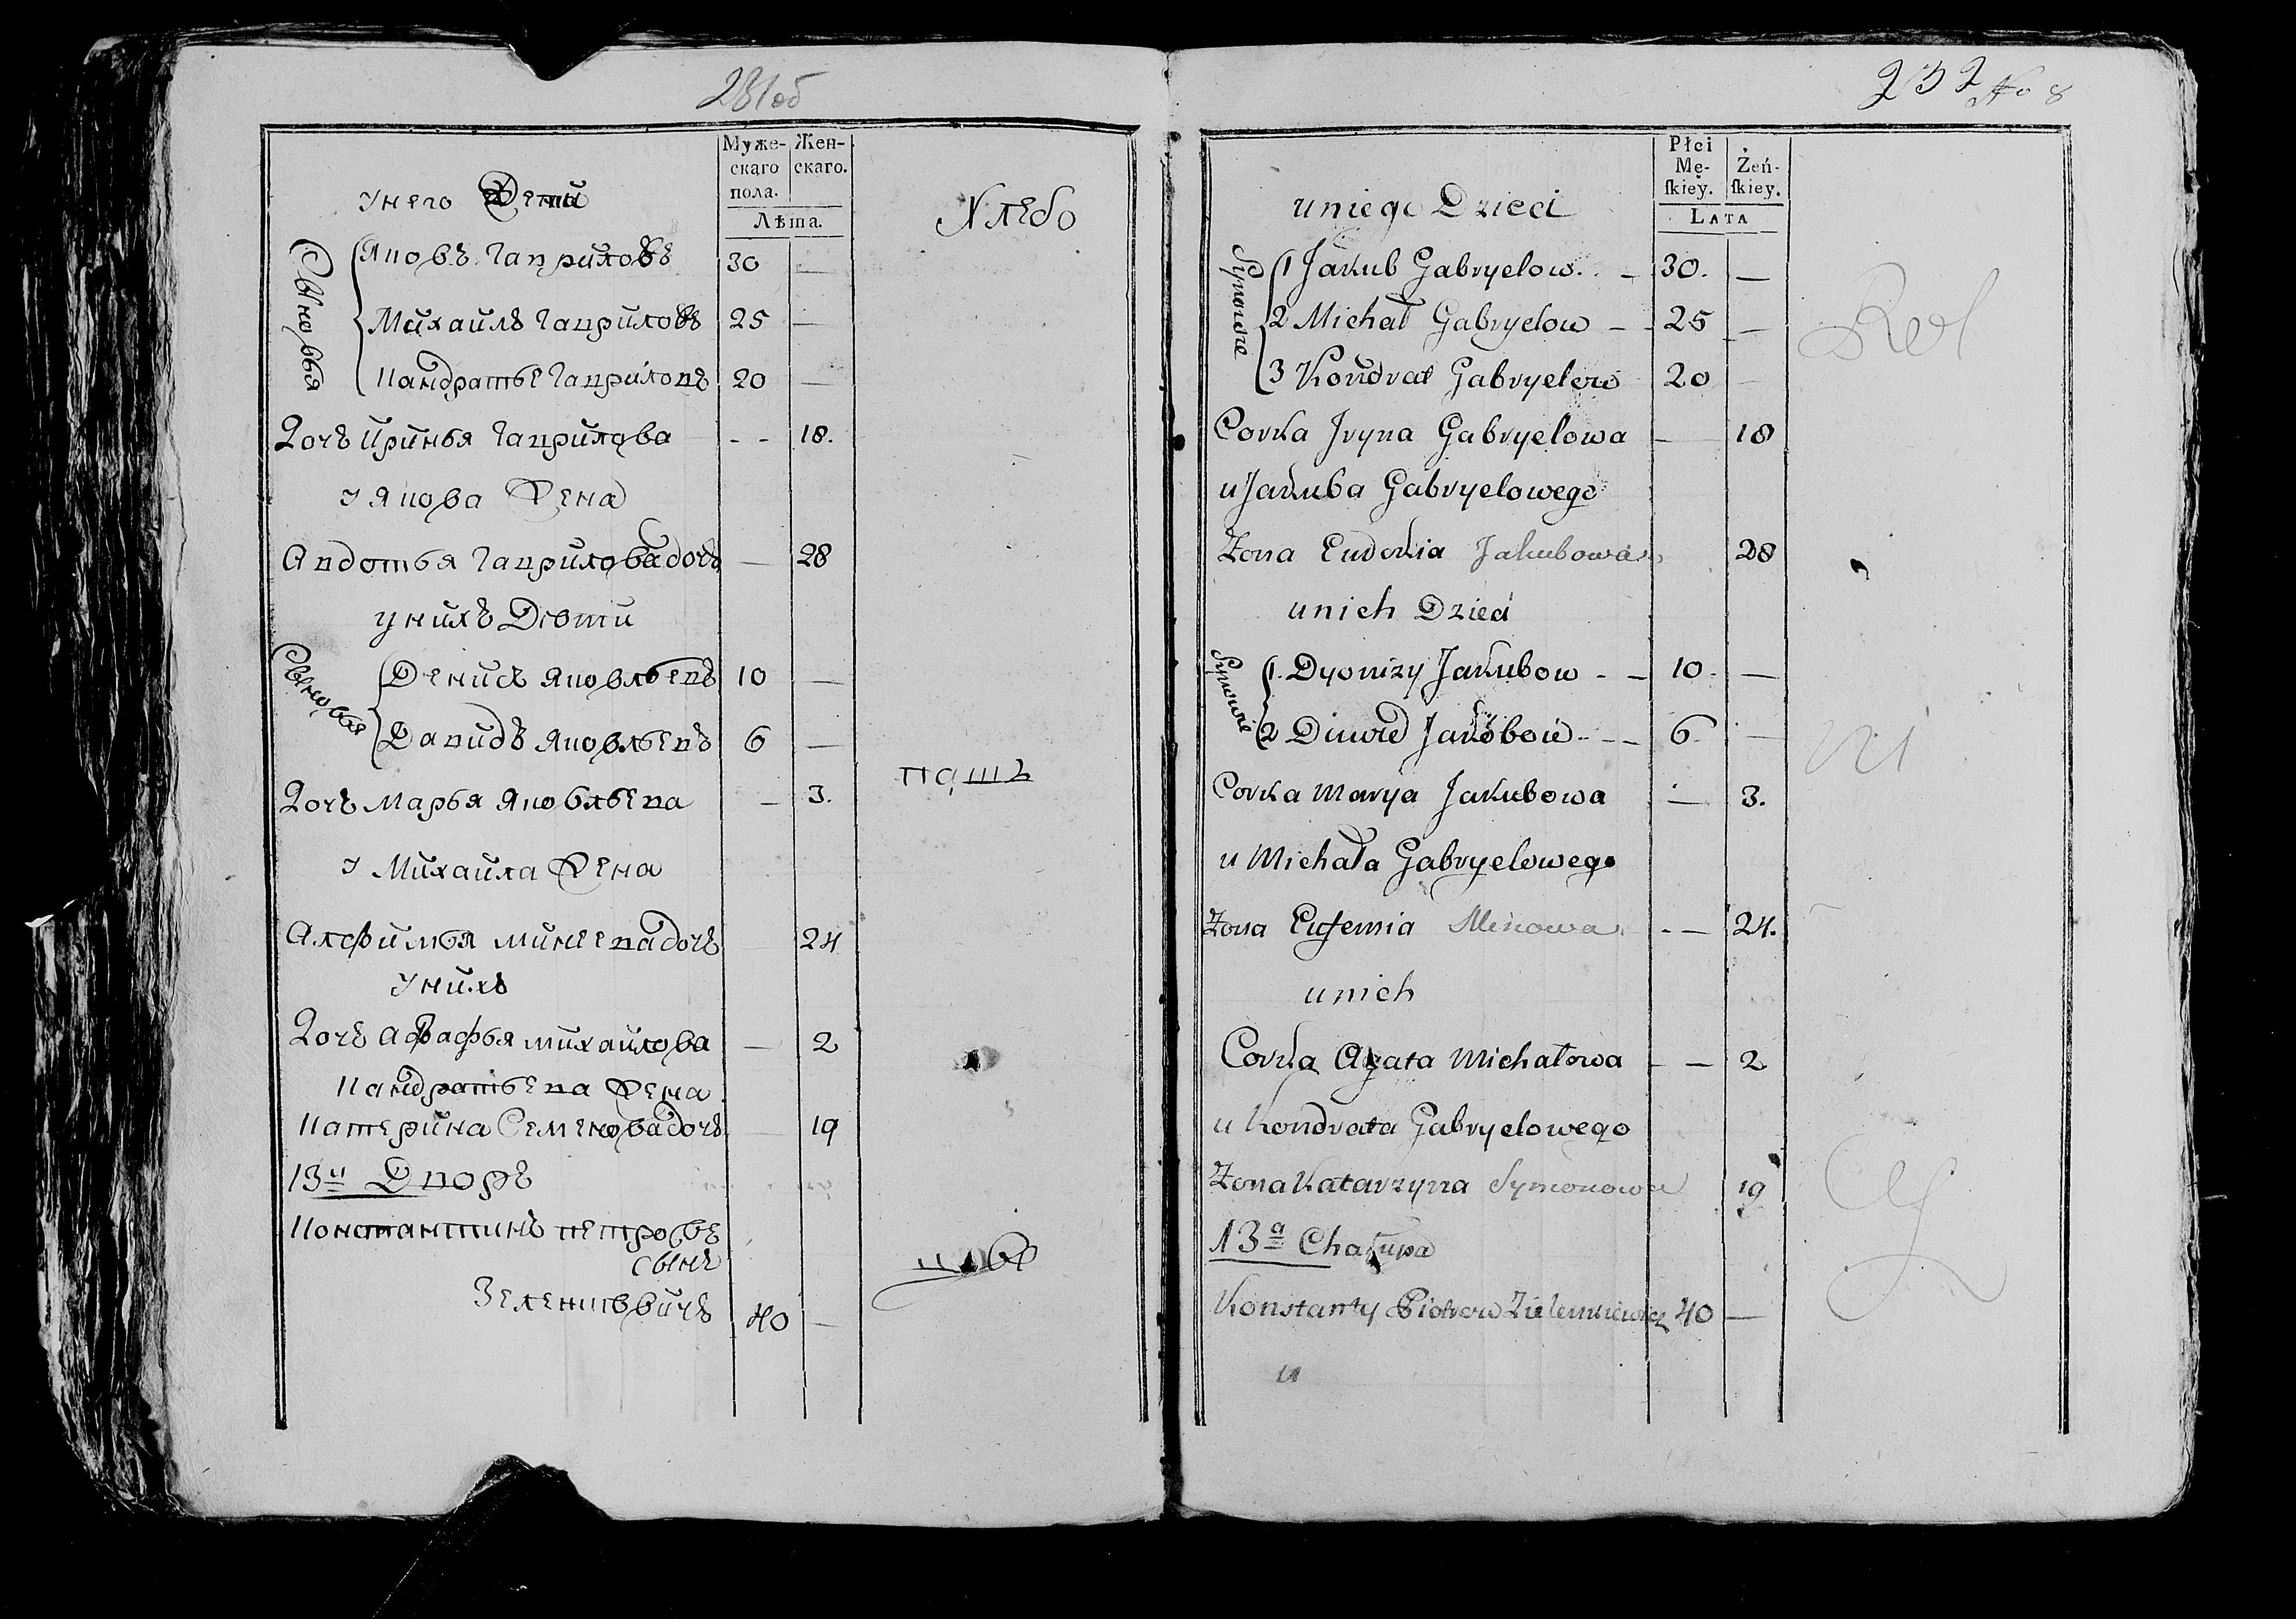 231об
Муже-
скаго
пола.
Жен-
скаго.
Лѣта.
унего Дети
Хлебо
Сыновья
Яковъ Гавриловъ 30 —
Михаилъ Гавриловъ 25 —
Кандратье Гавриловъ 20 —
Дочъ Иринья Гаврилова - - 18.
У Якова Жена
Авдотья Гаврилова дочъ — 28
у нихъ Дѣти
Сыновья
Денисъ Яковльевъ 10 —
Давидъ Яковльевъ 6 —
пашъ
Дочъ Марья Яковльева — 3.
У Михаила Жена
Алфимья Минеева дочъ 24
Унихъ
Дочъ Агафья Михайлова — 2
Кандратьева Жена
Катерина Семенова дочъ 19
13й Дворъ
Константинъ Петровъ
сынъ
Зеленевичъ 40 —
232 No 8
Płci
Mę-
ſkiey.
Żeń-
ſkiey.
LATA
u niego Dzieci
Synowie
1 Jakub Gabryelow. — 30. —
2 Michał Gabryelow — 25 —
3 Kondrat Gabryelow 20 —
Corka Jryna Gabryelowa — 18
u Jakuba Gabryelowego
Zona Eudokia Jakubowa 28
u nich Dzieci
Synowie
1. Dyonizy Jakubow - — 10. —
2 Dawid Jakobow - — 6 —
Corka Marya Jakubowa — 3.
u Michała Gabryelowego
Zona Eufemia Minowa - — 24.
u nich
Corka Agata Michałowa - — 2
u Kondrata Gabryelowego
Zona Katarzyna Symonowa 19
13a Chałupa
Konstanty Piotrow Zieleniewicz 40 —
u